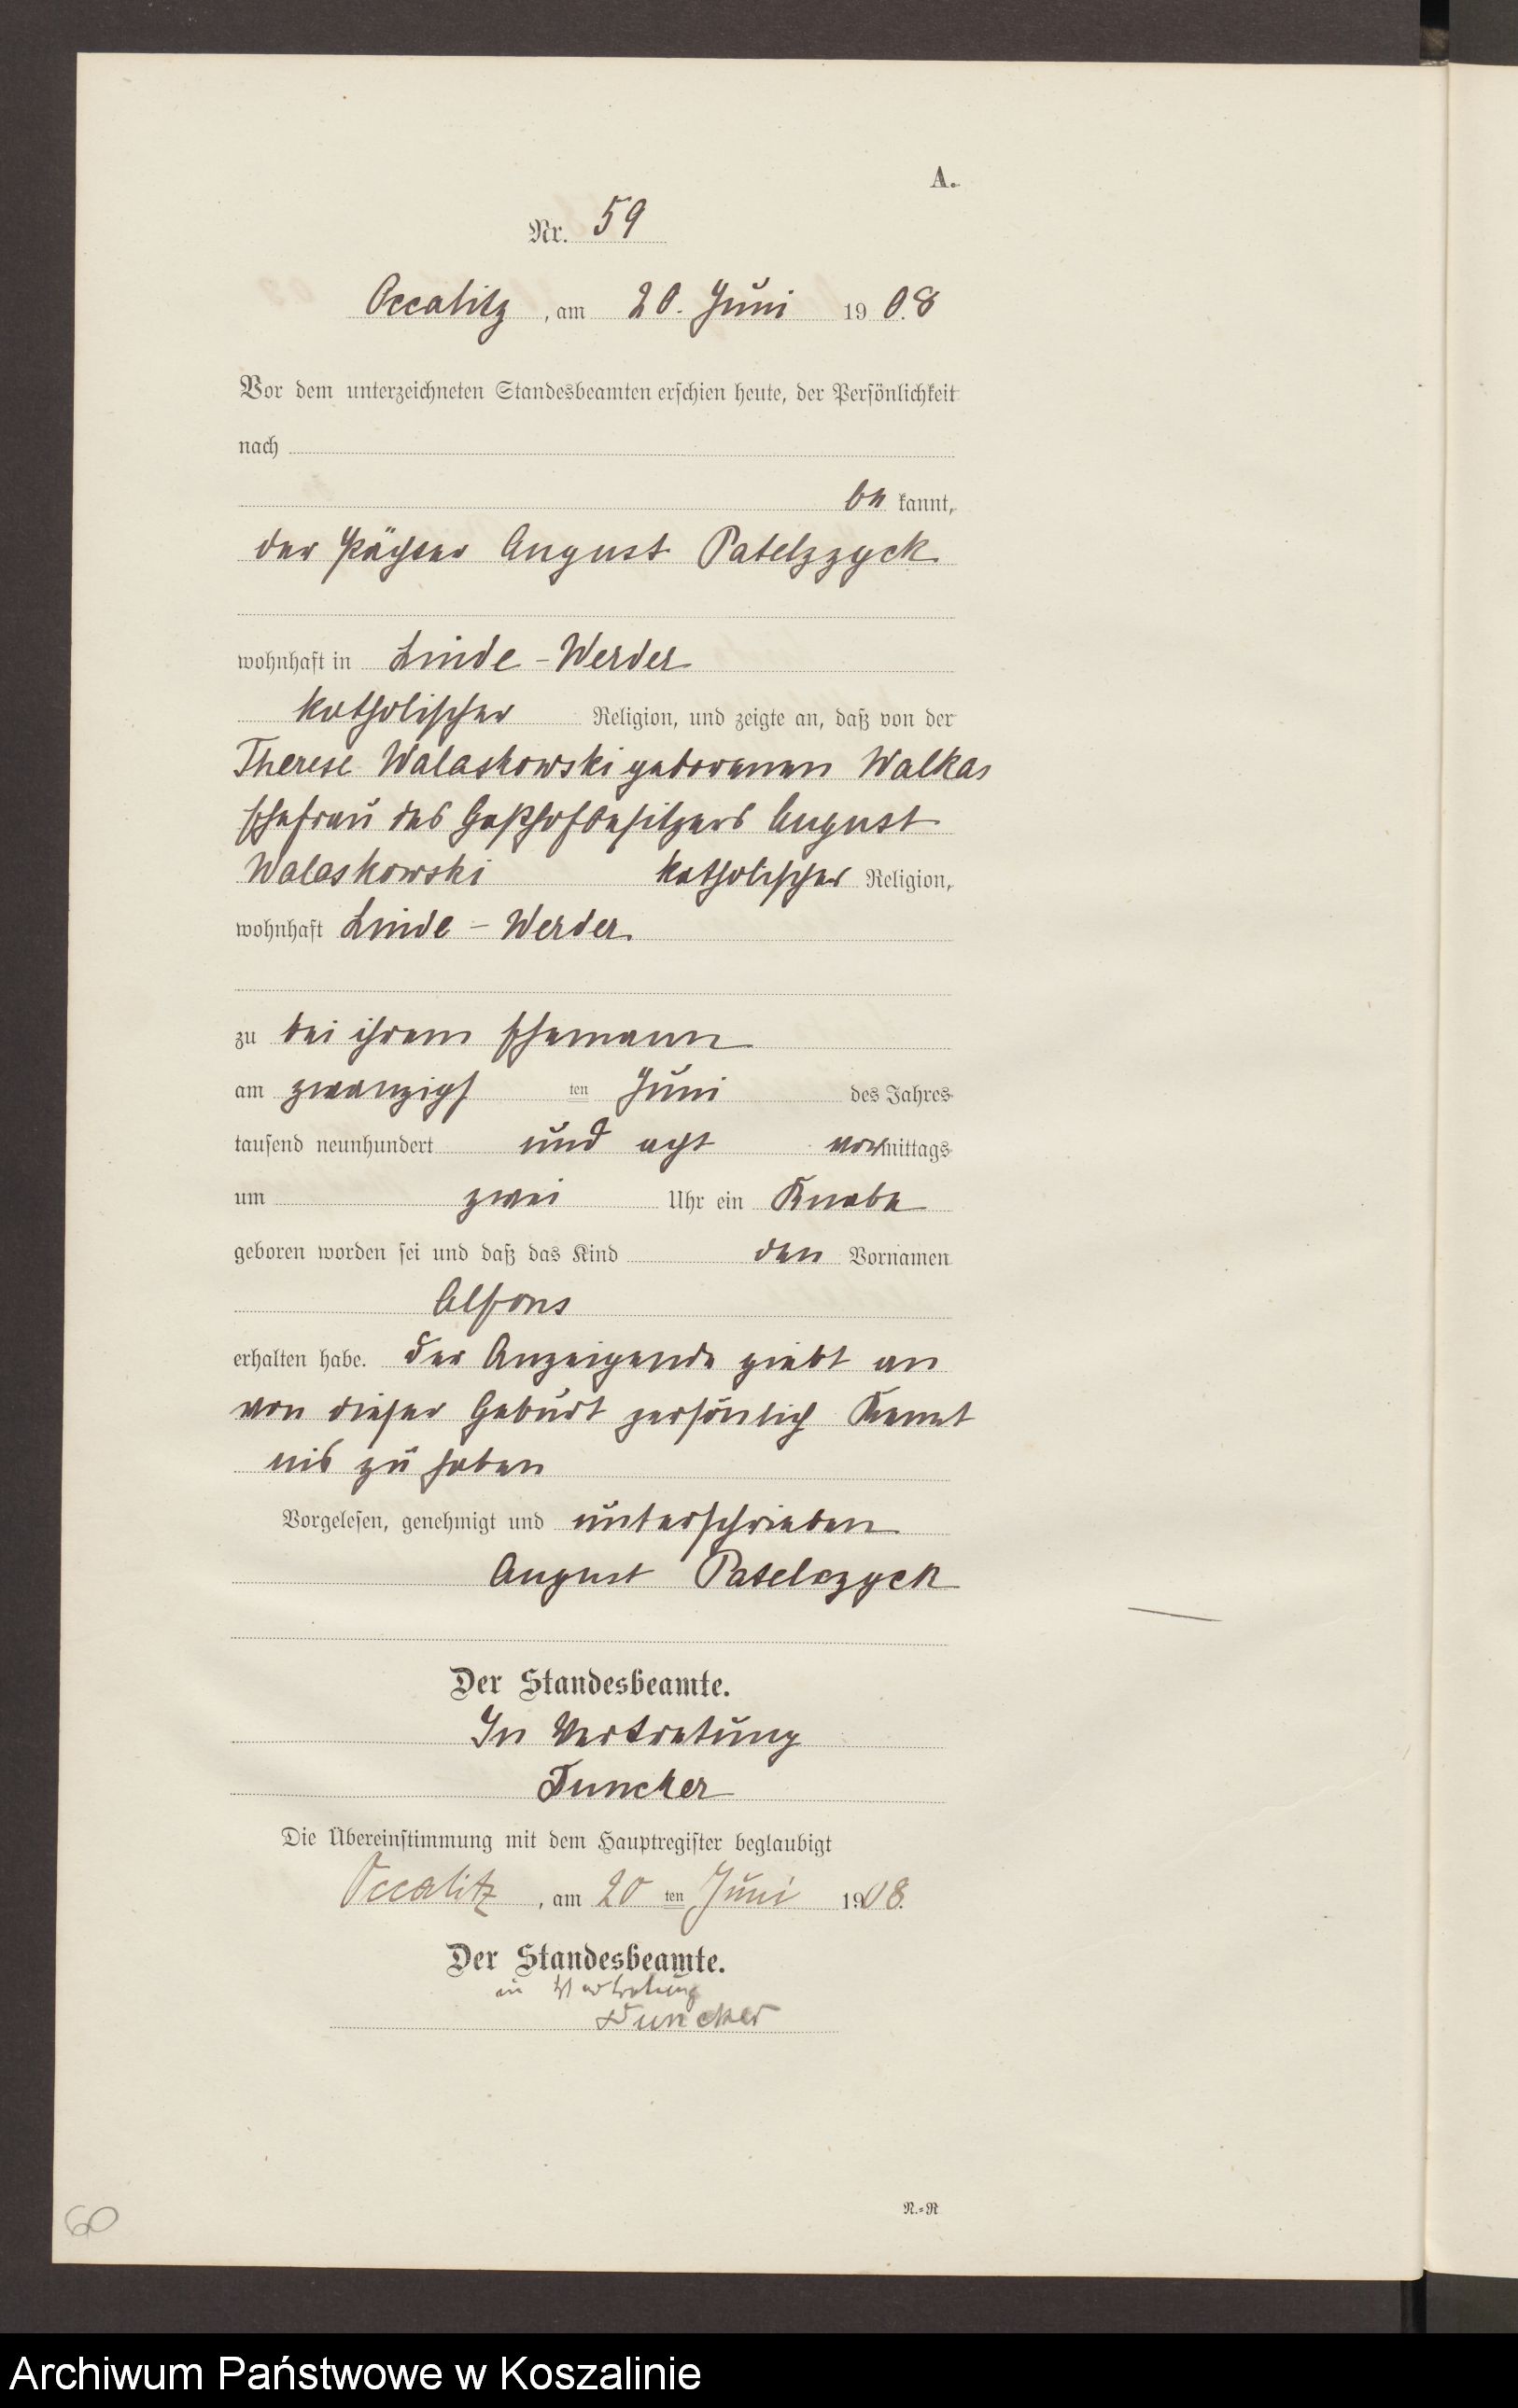 A.
Nr. 59
Occalitz, am 20. Juni 1908
Vor dem unterzeichneten Standesbeamten erschien heute, der Persönlichkeit
nach
be kannt,
der Pächter August Patelzzyck
wohnhaft in Linde-Werder
katholischer Religion, und zeigte an, daß von der
Therese Walaskowski geborenen Walkas
Ehefrau des Gasthofbesitzers August
Walaskowski katholischer Religion,
wohnhaft Linde-Werder
zu bei ihrem Ehemann
am zwanzigs ten Juni des Jahres
tausend neunhundert und acht vormittags
um zwei Uhr ein Knabe
geboren worden sei und daß das Kind den Vornamen
Alfons
erhalten habe. Der Anzeigende giebt an
von dieser Geburt persönlich Kennt
nis zu haben
Vorgelesen, genehmigt und unterschrieben
August Patelczyck
Der Standesbeamte.
In Vertretung
Duncker
Die Übereinstimmung mit dem Hauptregister beglaubigt
Occalitz, am 20 ten Juni 1908.
Der Standesbeamte.
in Vertretung
Duncker
N.=R
60
Archiwum Państwowe w Koszalinie